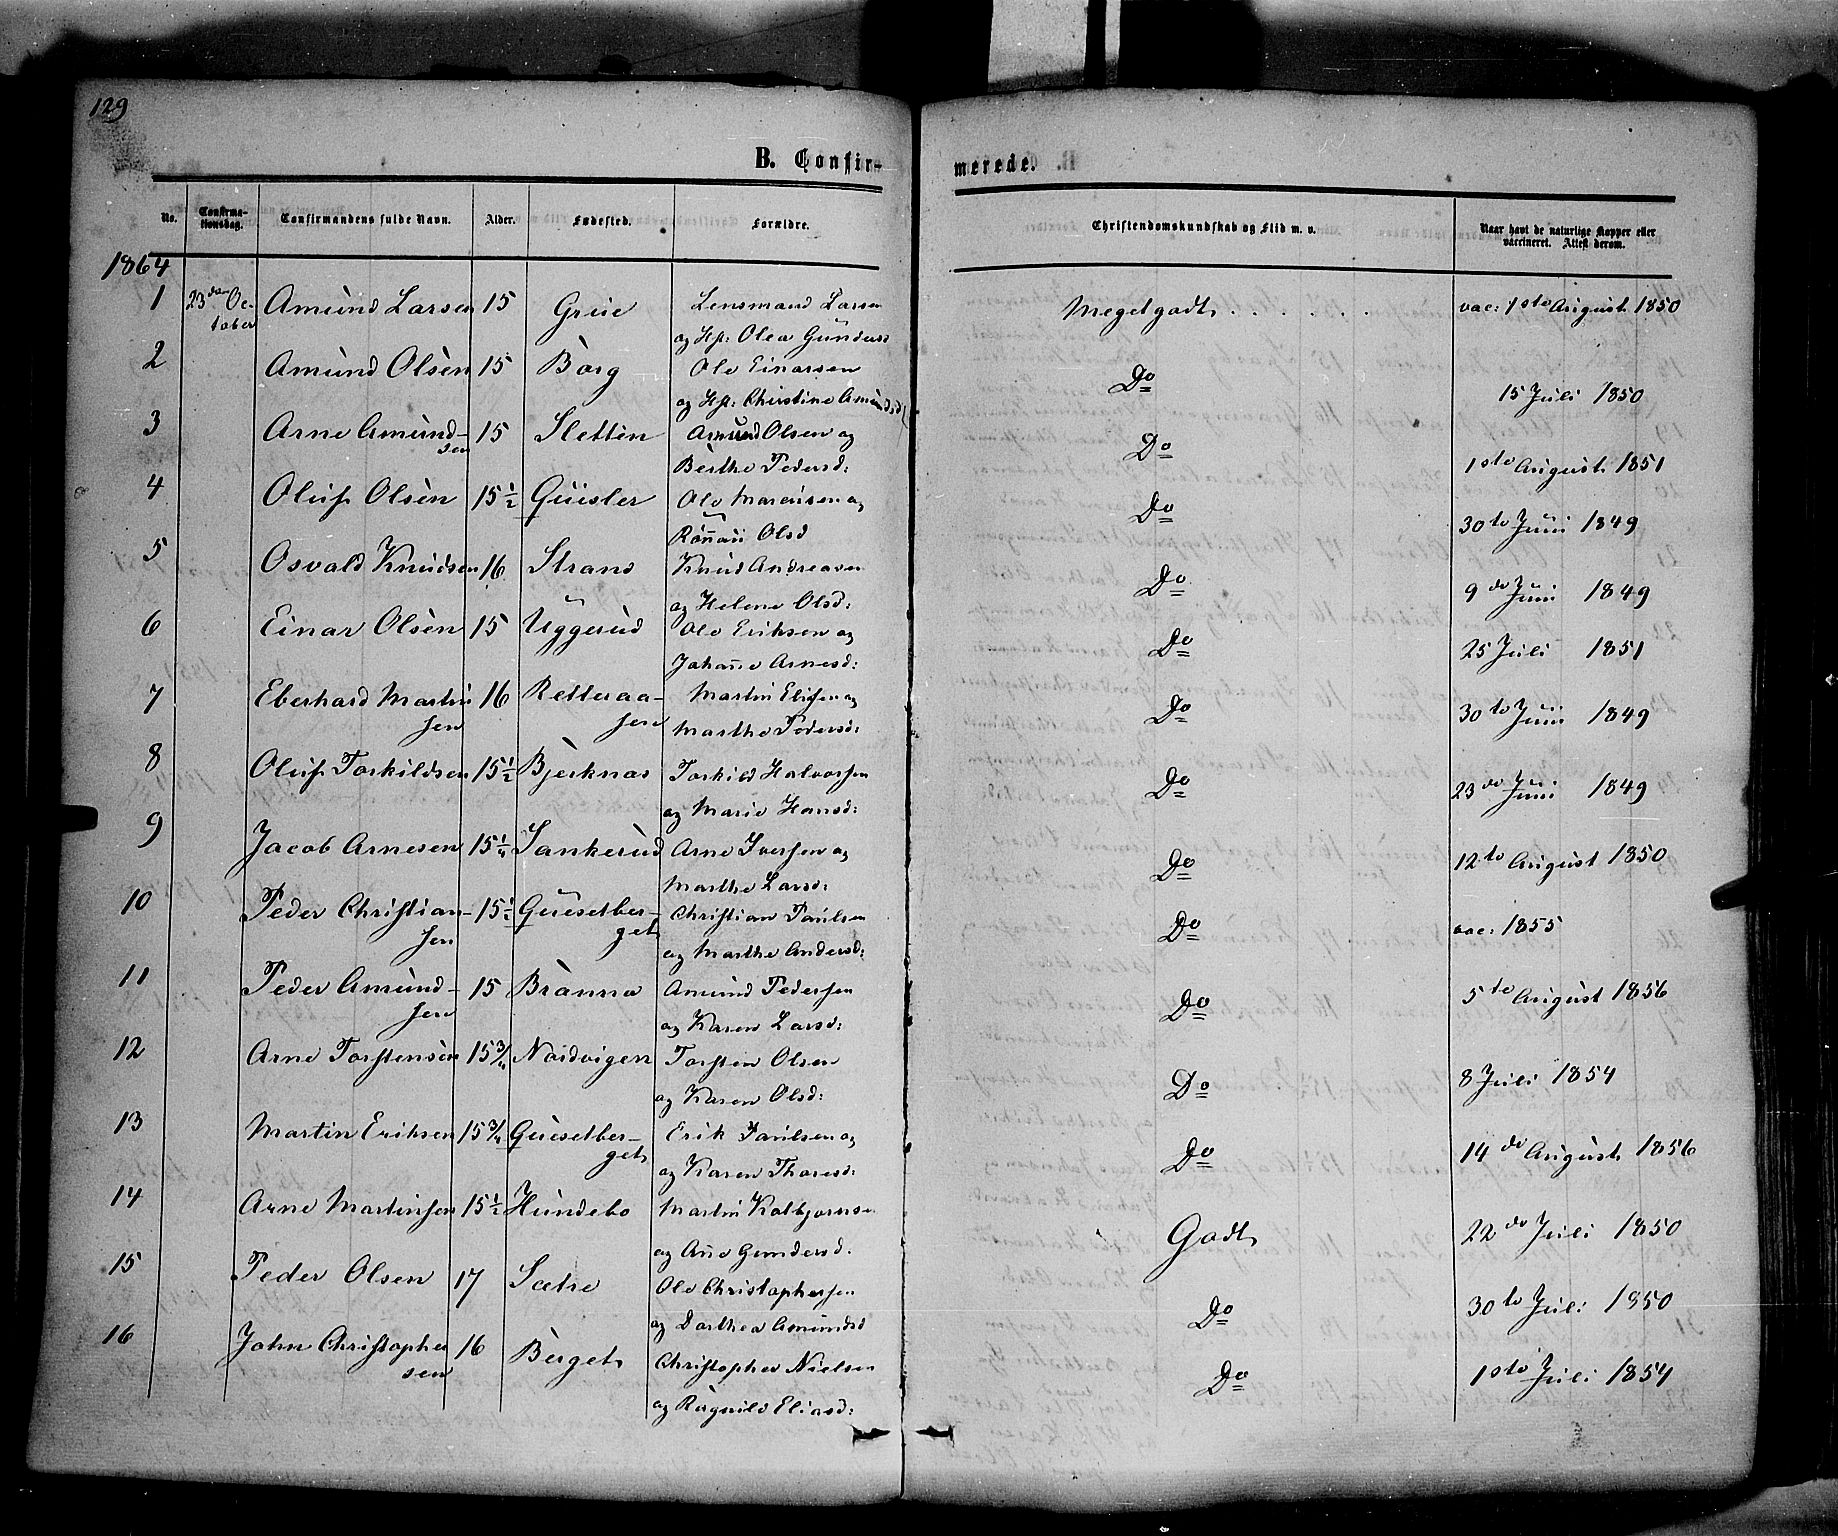 129
B. Confir-
merede.
No. Confirma-tionsdag. Confirmandens fulde Navn. Alder. Fødested. Forældre. Christendomskundskab og Flid m. v. Naar havt de naturlige Kopper eller vaccineret. Attest derom.
1864
1 23de Oc- Amund Larsen 15 Grue Lensmand Larsen Meget godt . . . . . . vac: 1ste August 1850
tober og Hst: Olea Gunders
2 Amund Olsen 15 Borg Ole Einarsen Do 15 Juli 1850
og Hst: Christine Amundsd
3 Arne Amund- 15 Sletten Amund Olsen og Do 1ste August 1851
sen Berthe Pedersd:
4 Oluf Olsen 15½ Guisler Ole Marcusen og Do 30te Juni 1849
Rønnau Olsd
5 Osvald Knudsen 16 Strand Knud Andreasen Do 9de Juni 1849
og Helene Olsd:
6 Einar Olsen 15 Uggerud Ole Eriksen og Do 25 Juli 1851
Johanne Arnesd:
7 Eberhard Martin 16 Retteraa- Martin Elifsen og Do 30te Juni 1849
sen sen Marthe Pedersd:
8 Oluf Torkildsen 15½ Bjerknæs Torkild Halvorsen Do 23de Juni 1849
og Marie Hansd:
9 Jacob Arnesen 15¼ Sankerud Arne Iversen og Do 12te August 1850
Marthe Larsd:
10 Peder Christian- 15½ Guesetber- Christian Paulsen Do vac: 1855
sen get og Marthe Andersd:
11 Peder Amund- 15 Branna Amund Pedersen Do 5te August 1856
sen og Karen Larsd:
12 Arne Torstensen 15¾ Nordvigen Torsten Olsen Do 8 Juli 1854
og Karen Olsd:
13 Martin Eriksen 15¾ Guesetber- Erik Paulsen og Do 14de August 1856
get og Karen Thoresd:
14 Arne Martinsen 15½ Hundebo Martin Kolbjørnsen Godt 22de Juli 1850
og Ane Gundersd.
15 Peder Olsen 17 Sætre Ole Christophersen Do 30te Juli 1850
og Dorthea Amundsd
16 John Christopher 16 Berget Christopher Nielsen Do 1ste Juli 1854
sen og Ragnild Eliasd: